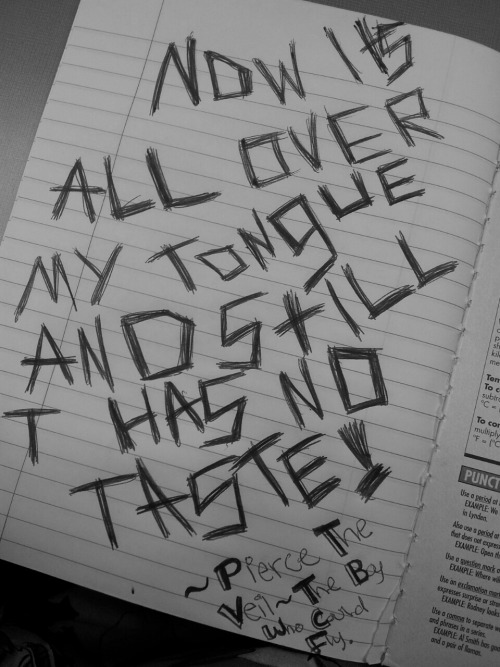 NOW ITS
ALL OVER
MY TONgUE
AND STILL
T HAS NO
TASTE!
~Pierce The
Veil~ The Boy
Who Could
Fly.
To c
subtra
°C =
To con
multiply
°F = (°C
PUNCT
Use a period
EXAMPLE: We
in Lynden.
Also use a period
that does not
EXAMPLE: Open
Use a question mark
EXAMPLE: Where
Use an exclamation
expresses surprise or
EXAMPLE: Rodney
Use a comma to separate
and phrases in a series.
EXAMPLE: Al Smith has
and a pair of llamas.